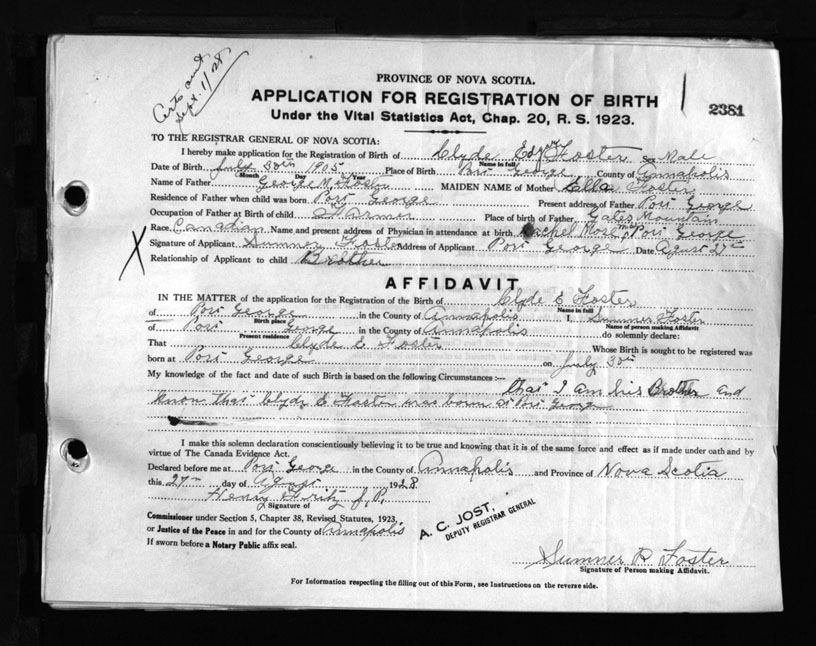 Certs and
Sept. 1/28
PROVINCE OF NOVA SCOTIA.
APPLICATION FOR REGISTRATION OF BIRTH
2381
Under the Vital Statistics Act, Chap. 20, R. S. 1923.
TO THE REGISTRAR GENERAL OF NOVA SCOTIA:
I hereby make application for the Registration of Birth of Clyde Foster Sex Male
Name in full
Date of Birth July 30th 1905 Place of Birth Port George County of Annapolis
Month Day Year
Name of Father George Foster MAIDEN NAME of Mother Ella Foster
Residence of Father when child was born Port George Present address of Father Port George
Occupation of Father at Birth of child Farmer Place of birth of Father Gates Mountain
Race Canadian Name and present address of Physician in attendance at birth Rachel Port George
Signature of Applicant Sumner Foster Address of Applicant Port George Date 27th
Relationship of Applicant to child Brother
X
AFFIDAVIT
IN THE MATTER of the application for the Registration of the Birth of Clyde E Foster
Name in full
of Port George in the County of Annapolis I, Sumner Foster
Birth place Name of person making Affidavit
of Port George in the County of Annapolis do solemnly declare:
Present residence
That Clyde E Foster Whose Birth is sought to be registered was
born at Port George on July 30th
My knowledge of the fact and date of such Birth is based on the following Circumstances :— that I am his Brother and
know that Clyde E Foster was born at Port George
I make this solemn declaration conscientiously believing it to be true and knowing that it is of the same force and effect as if made under oath and by
virtue of The Canada Evidence Act.
Declared before me at Port George in the County of Annapolis and Province of Nova Scotia
this 27th day of August 1928
Henry Fritz J. P.
Signature of
Commissioner under Section 5, Chapter 38, Revised Statutes, 1923,
or Justice of the Peace in and for the County of Annapolis
If sworn before a Notary Public affix seal.
A. C. JOST.
DEPUTY REGISTRAR GENERAL
Sumner R Foster
Signature of Person making Affidavit.
For Information respecting the filling out of this Form, see Instructions on the reverse side.